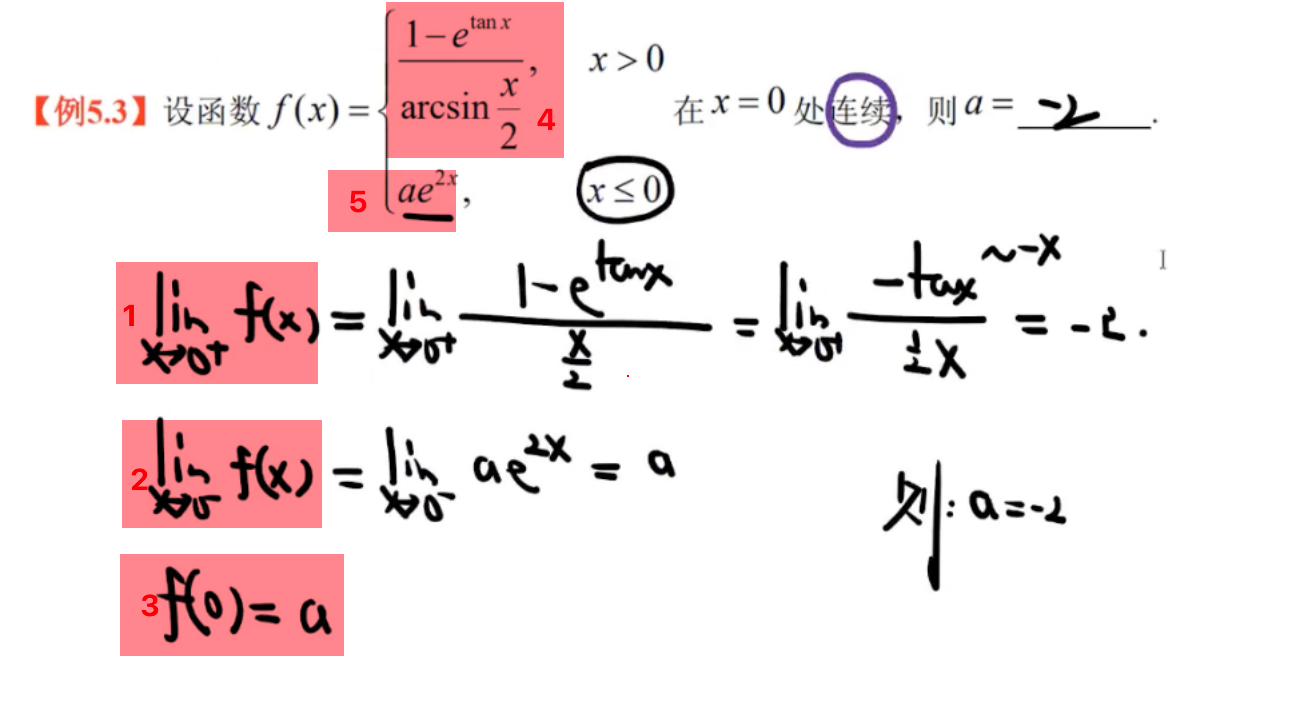 【例5.3】设函数 f(x) = { (1-e^{tan x})/(arcsin x/2), x > 0 4 在 x = 0 处连续, 则 a = -2 .
5 ae^{2x}, x ≤ 0
1 lim_{x→0⁺} f(x) = lim_{x→0⁺} (1-e^{tanx})/(x/2) = lim_{x→0⁺} (-tanx ~-x)/(1/2 x) = -2 .
2 lim_{x→0⁻} f(x) = lim_{x→0⁻} ae^{2x} = a
则: a = -2
3 f(0) = a